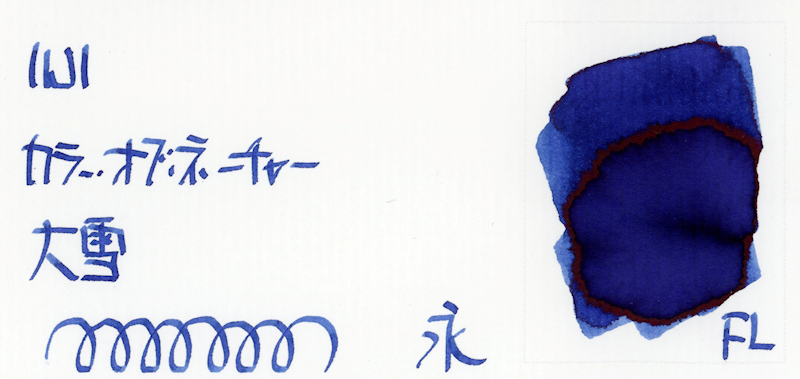 IWI
カラー・オブ・ネーチャー
大雪
永
FL